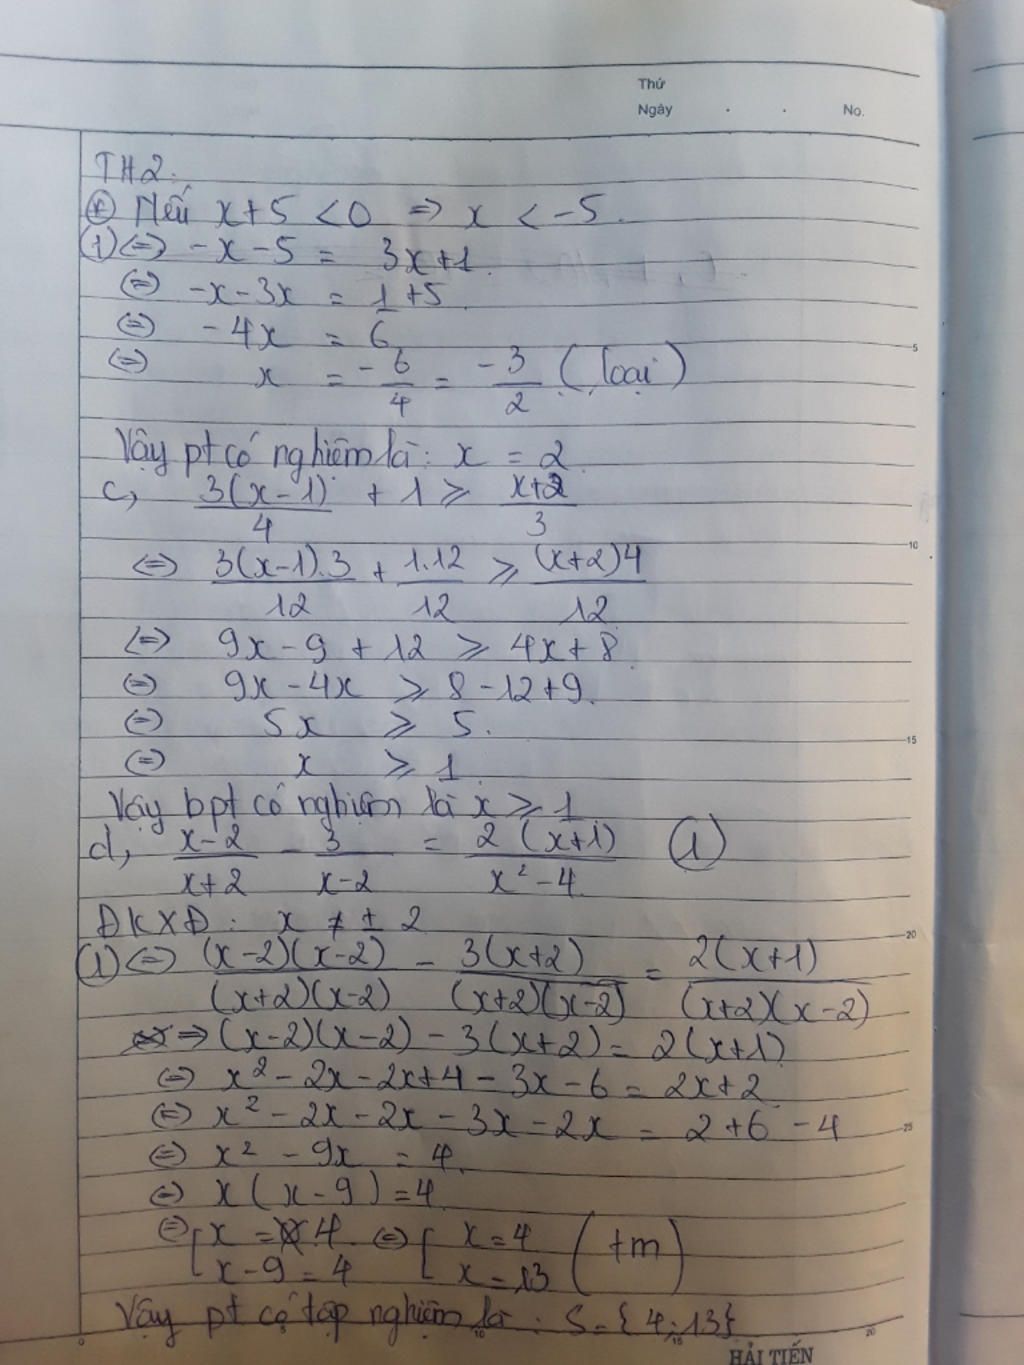 Thứ
Ngày . . No.
TH2.
* Nếu x+5 < 0 => x < -5.
(1) <=> -x-5 = 3x+1.
<=> -x-3x = 1+5
<=> -4x = 6
<=> x = -6/4 = -3/2 (loại)
5
Vậy pt có nghiệm là: x = 2.
c, 3(x-1)/4 + 1 ≥ (x+2)/3
10
<=> 3(x-1).3/12 + 1.12/12 ≥ (x+2)4/12
<=> 9x-9+12 ≥ 4x+8.
<=> 9x-4x ≥ 8-12+9.
<=> 5x ≥ 5.
15
<=> x ≥ 1.
Vậy bpt có nghiệm là x ≥ 1
d, (x-2)/(x+2) - 3/(x-2) = 2(x+1)/(x²-4) (1)
ĐKXĐ: x ≠ ± 2
20
(1) <=> (x-2)(x-2)/(x+2)(x-2) - 3(x+2)/(x+2)(x-2) = 2(x+1)/(x+2)(x-2)
=> (x-2)(x-2) - 3(x+2) = 2(x+1)
<=> x²-2x-2x+4-3x-6 = 2x+2
<=> x²-2x-2x-3x-2x = 2+6-4
25
<=> x²-9x = 4.
<=> x(x-9) = 4
<=> [ x = 4 <=> [ x = 4 (tm)
x-9 = 4 x = 13
Vậy pt có tập nghiệm là: S={4;13}
0 10 15 20
HẢI TIẾN